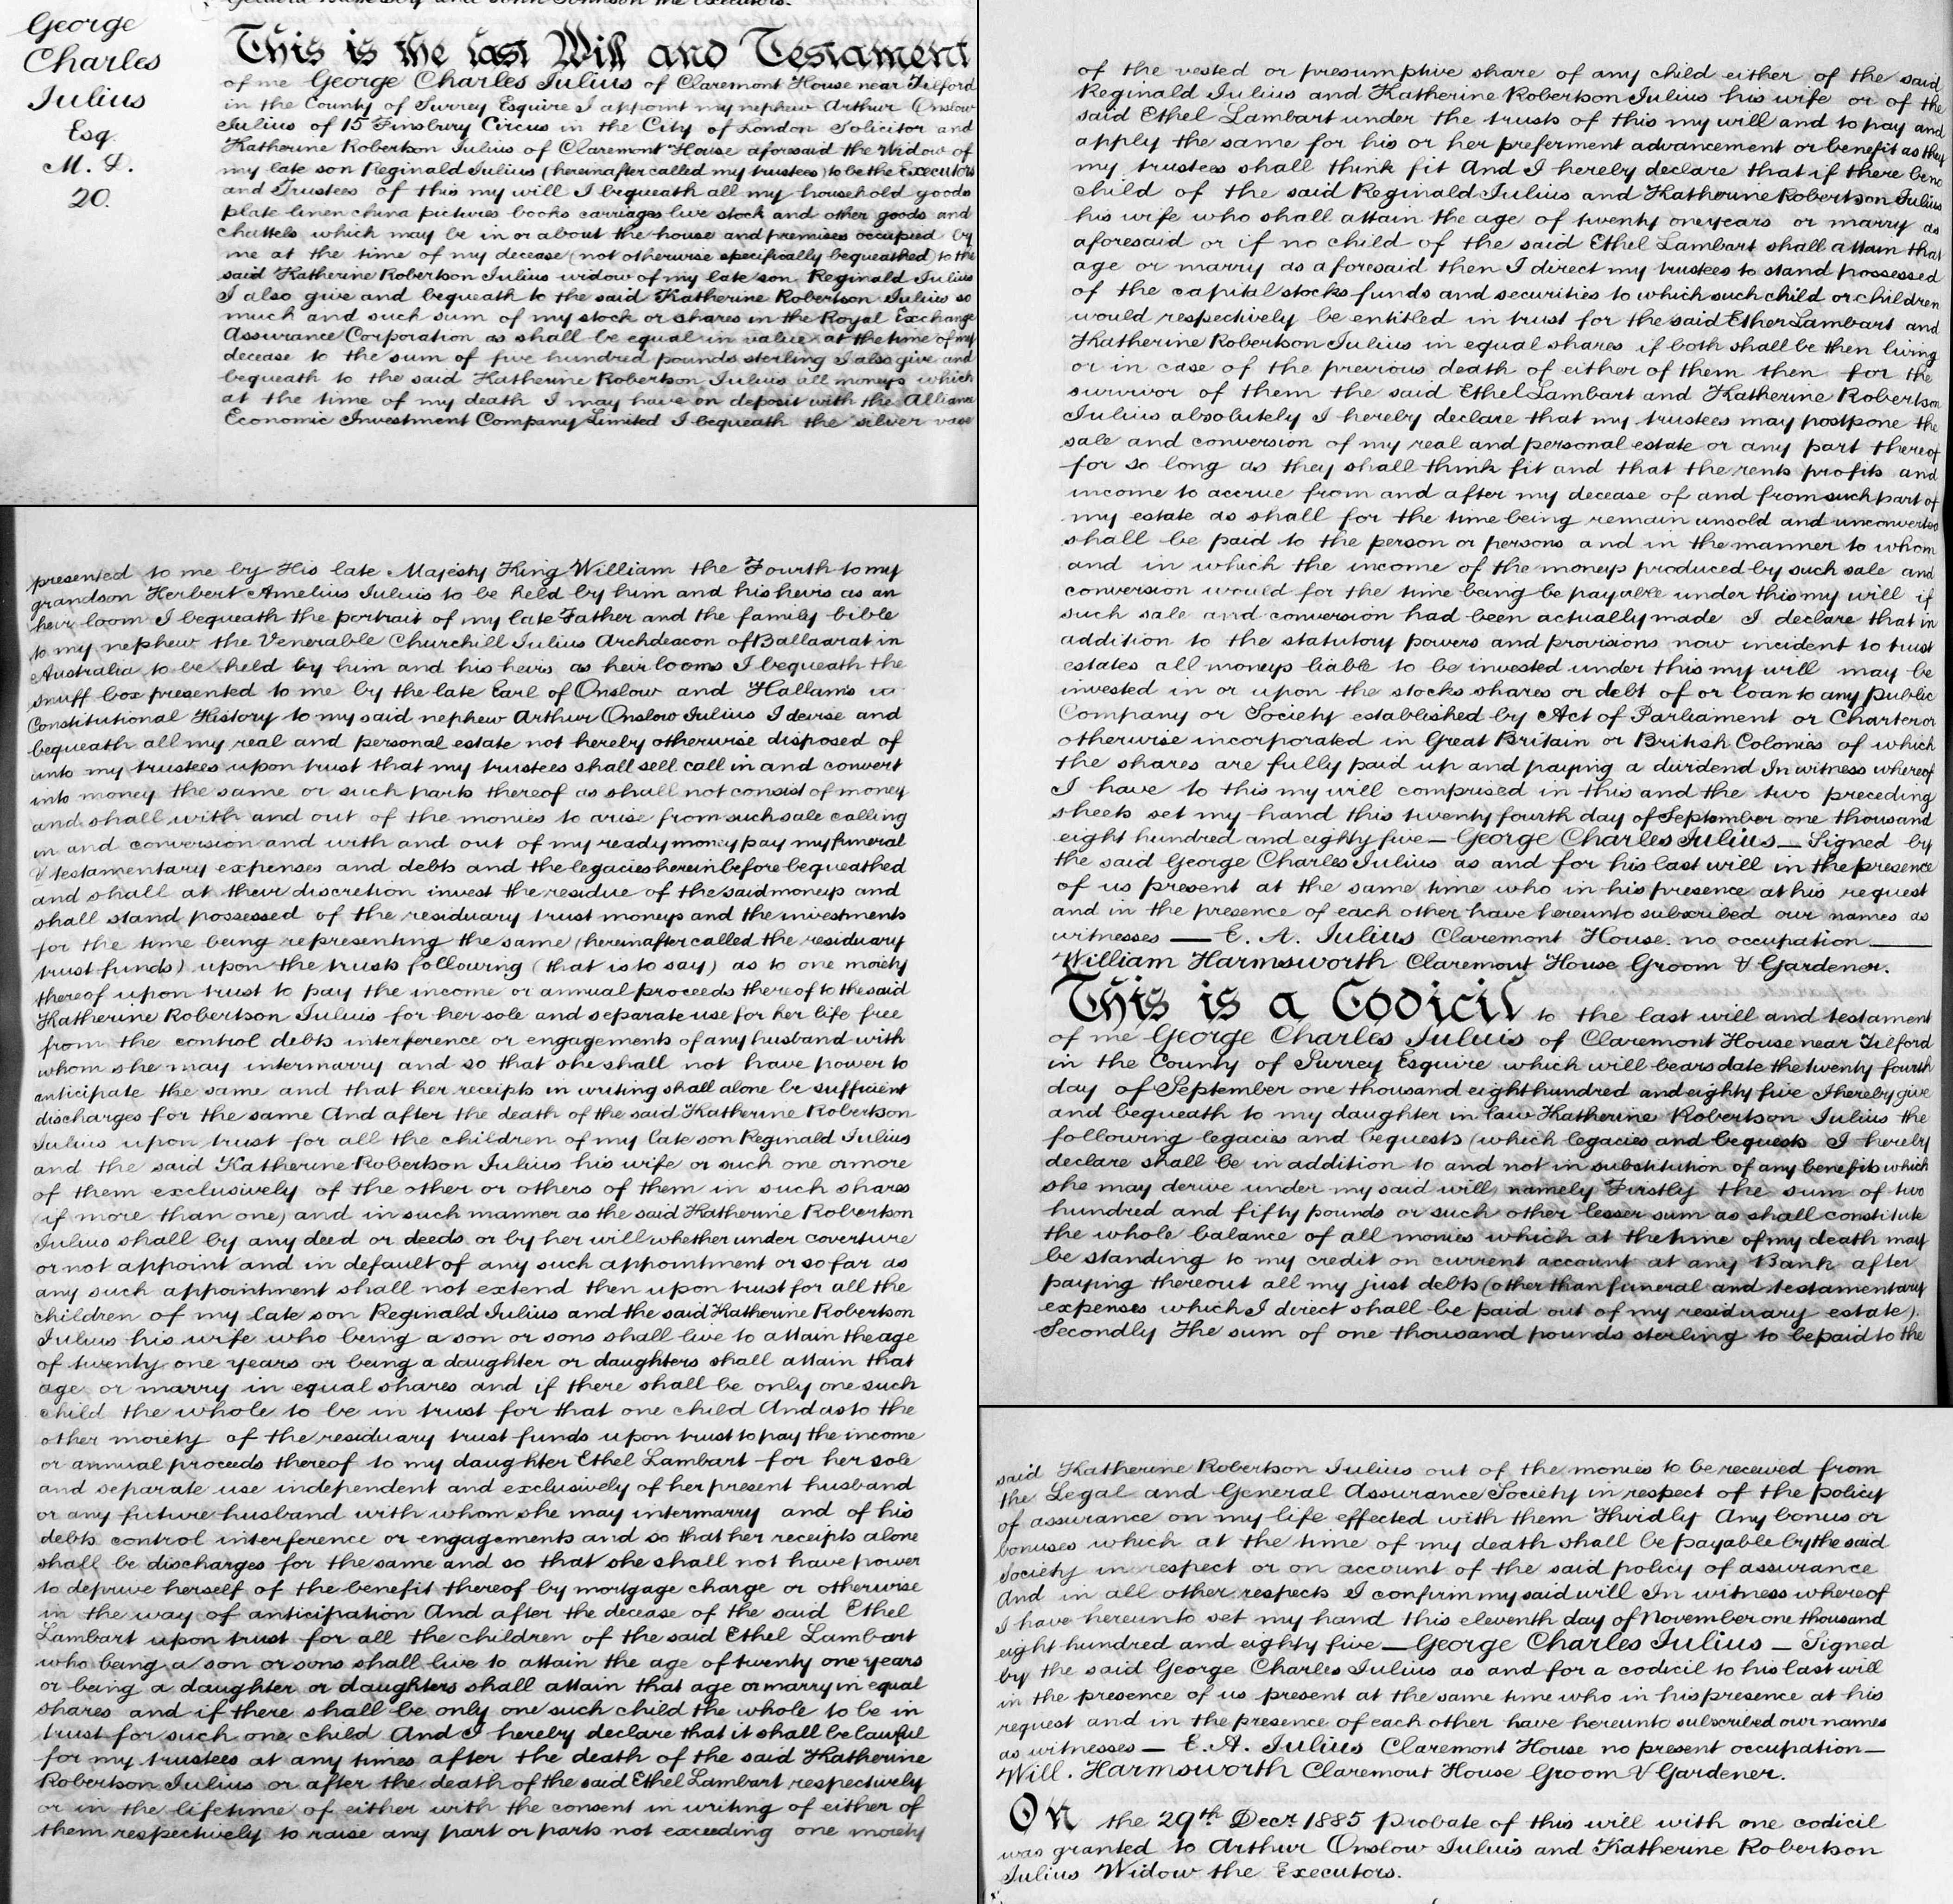 George
Charles
Julius
Esq.
M. D.
20.
This is the last Will and Testament
of me George Charles Julius of Claremont House near Tilford
in the County of Surrey Esquire I appoint my nephew Arthur Onslow
Julius of 15 Finsbury Circus in the City of London Solicitor and
Katherine Robertson Julius of Claremont House aforesaid the Widow of
my late son Reginald Julius (hereinafter called my trustees) to be the Executors
and Trustees of this my will I bequeath all my household goods
plate linen china pictures books carriages live stock and other goods and
chattels which may be in or about the house and premises occupied by
me at the time of my decease (not otherwise specifically bequeathed) to the
said Katherine Robertson Julius widow of my late son Reginald Julius
I also give and bequeath to the said Katherine Robertson Julius so
much and such sum of my stock or shares in the Royal Exchange
Assurance Corporation as shall be equal in value at the time of my
decease to the sum of five hundred pounds sterling I also give and
bequeath to the said Katherine Robertson Julius all moneys which
at the time of my death I may have on deposit with the Alliance
Economic Investment Company Limited I bequeath the silver vase
presented to me by His late Majesty King William the Fourth to my
grandson Herbert Amelius Julius to be held by him and his heirs as an
heir loom I bequeath the portrait of my late Father and the family bible
to my nephew the Venerable Churchill Julius Archdeacon of Ballaarat in
Australia to be held by him and his heirs as heirlooms I bequeath the
snuff box presented to me by the late Earl of Onslow and Hallam's
Constitutional History to my said nephew Arthur Onslow Julius I devise and
bequeath all my real and personal estate not hereby otherwise disposed of
unto my trustees upon trust that my trustees shall sell call in and convert
into money the same or such parts thereof as shall not consist of money
and shall with and out of the monies to arise from such sale calling
in and conversion and with and out of my ready money pay my funeral
& testamentary expenses and debts and the legacies hereinbefore bequeathed
and shall at their discretion invest the residue of the said moneys and
shall stand possessed of the residuary trust moneys and the investments
for the time being representing the same (hereinafter called the residuary
trust funds) upon the trusts following (that is to say) as to one moiety
thereof upon trust to pay the income or annual proceeds thereof to the said
Katherine Robertson Julius for her sole and separate use for her life free
from the control debts interference or engagements of any husband with
whom she may intermarry and so that she shall not have power to
anticipate the same and that her receipts in writing shall alone be sufficient
discharges for the same And after the death of the said Katherine Robertson
Julius upon trust for all the children of my late son Reginald Julius
and the said Katherine Robertson Julius his wife or such one or more
of them exclusively of the other or others of them in such shares
(if more than one) and in such manner as the said Katherine Robertson
Julius shall by any deed or deeds or by her will whether under coverture
or not appoint and in default of any such appointment or so far as
any such appointment shall not extend then upon trust for all the
children of my late son Reginald Julius and the said Katherine Robertson
Julius his wife who being a son or sons shall live to attain the age
of twenty one years or being a daughter or daughters shall attain that
age or marry in equal shares and if there shall be only one such
child the whole to be in trust for that one child And as to the
other moiety of the residuary trust funds upon trust to pay the income
or annual proceeds thereof to my daughter Ethel Lambart for her sole
and separate use independent and exclusively of her present husband
or any future husband with whom she may intermarry and of his
debts control interference or engagements and so that her receipts alone
shall be discharges for the same and so that she shall not have power
to deprive herself of the benefit thereof by mortgage charge or otherwise
in the way of anticipation And after the decease of the said Ethel
Lambart upon trust for all the children of the said Ethel Lambart
who being a son or sons shall live to attain the age of twenty one years
or being a daughter or daughters shall attain that age or marry in equal
shares and if there shall be only one such child the whole to be in
trust for such one child And I hereby declare that it shall be lawful
for my trustees at any times after the death of the said Katherine
Robertson Julius or after the death of the said Ethel Lambart respectively
or in the lifetime of either with the consent in writing of either of
them respectively to raise any part or parts not exceeding one moiety
of the vested or presumptive share of any child either of the said
Reginald Julius and Katherine Robertson Julius his wife or of the
said Ethel Lambart under the trusts of this my will and to pay and
apply the same for his or her preferment advancement or benefit as they
my trustees shall think fit And I hereby declare that if there be no
child of the said Reginald Julius and Katherine Robertson Julius
his wife who shall attain the age of twenty one years or marry as
aforesaid or if no child of the said Ethel Lambart shall attain that
age or marry as aforesaid then I direct my trustees to stand possessed
of the capital stocks funds and securities to which such child or children
would respectively be entitled in trust for the said Ethel Lambart and
Katherine Robertson Julius in equal shares if both shall be then living
or in case of the previous death of either of them then for the
survivor of them the said Ethel Lambart and Katherine Robertson
Julius absolutely I hereby declare that my trustees may postpone the
sale and conversion of my real and personal estate or any part thereof
for so long as they shall think fit and that the rents profits and
income to accrue from and after my decease of and from such part of
my estate as shall for the time being remain unsold and unconverted
shall be paid to the person or persons and in the manner to whom
and in which the income of the moneys produced by such sale and
conversion would for the time being be payable under this my will if
such sale and conversion had been actually made I declare that in
addition to the statutory powers and provisions now incident to trust
estates all moneys liable to be invested under this my will may be
invested in or upon the stocks shares or debt of or loan to any public
Company or Society established by Act of Parliament or Charter or
otherwise incorporated in Great Britain or British Colonies of which
the shares are fully paid up and paying a dividend In witness whereof
I have to this my will comprised in this and the two preceding
sheets set my hand this twenty fourth day of September one thousand
eight hundred and eighty five — George Charles Julius — Signed by
the said George Charles Julius as and for his last will in the presence
of us present at the same time who in his presence at his request
and in the presence of each other have hereunto subscribed our names as
witnesses — E. A. Julius Claremont House. no occupation —
William Harmsworth Claremont House Groom & Gardener.
This is a Codicil to the last will and testament
of me George Charles Julius of Claremont House near Tilford
in the County of Surrey Esquire which will bears date the twenty fourth
day of September one thousand eight hundred and eighty five I hereby give
and bequeath to my daughter in law Katherine Robertson Julius the
following legacies and bequests (which legacies and bequests I hereby
declare shall be in addition to and not in substitution of any benefits which
she may derive under my said will) namely Firstly the sum of two
hundred and fifty pounds or such other lesser sum as shall constitute
the whole balance of all monies which at the time of my death may
be standing to my credit on current account at any Bank after
paying thereout all my just debts (other than funeral and testamentary
expenses which I direct shall be paid out of my residuary estate).
Secondly The sum of one thousand pounds sterling to be paid to the
said Katherine Robertson Julius out of the monies to be received from
the Legal and General Assurance Society in respect of the policy
of assurance on my life effected with them Thirdly Any bonus or
bonuses which at the time of my death shall be payable by the said
Society in respect or on account of the said policy of assurance
And in all other respects I confirm my said will In witness whereof
I have hereunto set my hand this eleventh day of November one thousand
eight hundred and eighty five — George Charles Julius — Signed
by the said George Charles Julius as and for a codicil to his last will
in the presence of us present at the same time who in his presence at his
request and in the presence of each other have hereunto subscribed our names
as witnesses — E. A. Julius Claremont House no present occupation —
Will. Harmsworth Claremont House Groom & Gardener.
On the 29th Decr 1885 Probate of this will with one codicil
was granted to Arthur Onslow Julius and Katherine Robertson
Julius Widow the Executors.